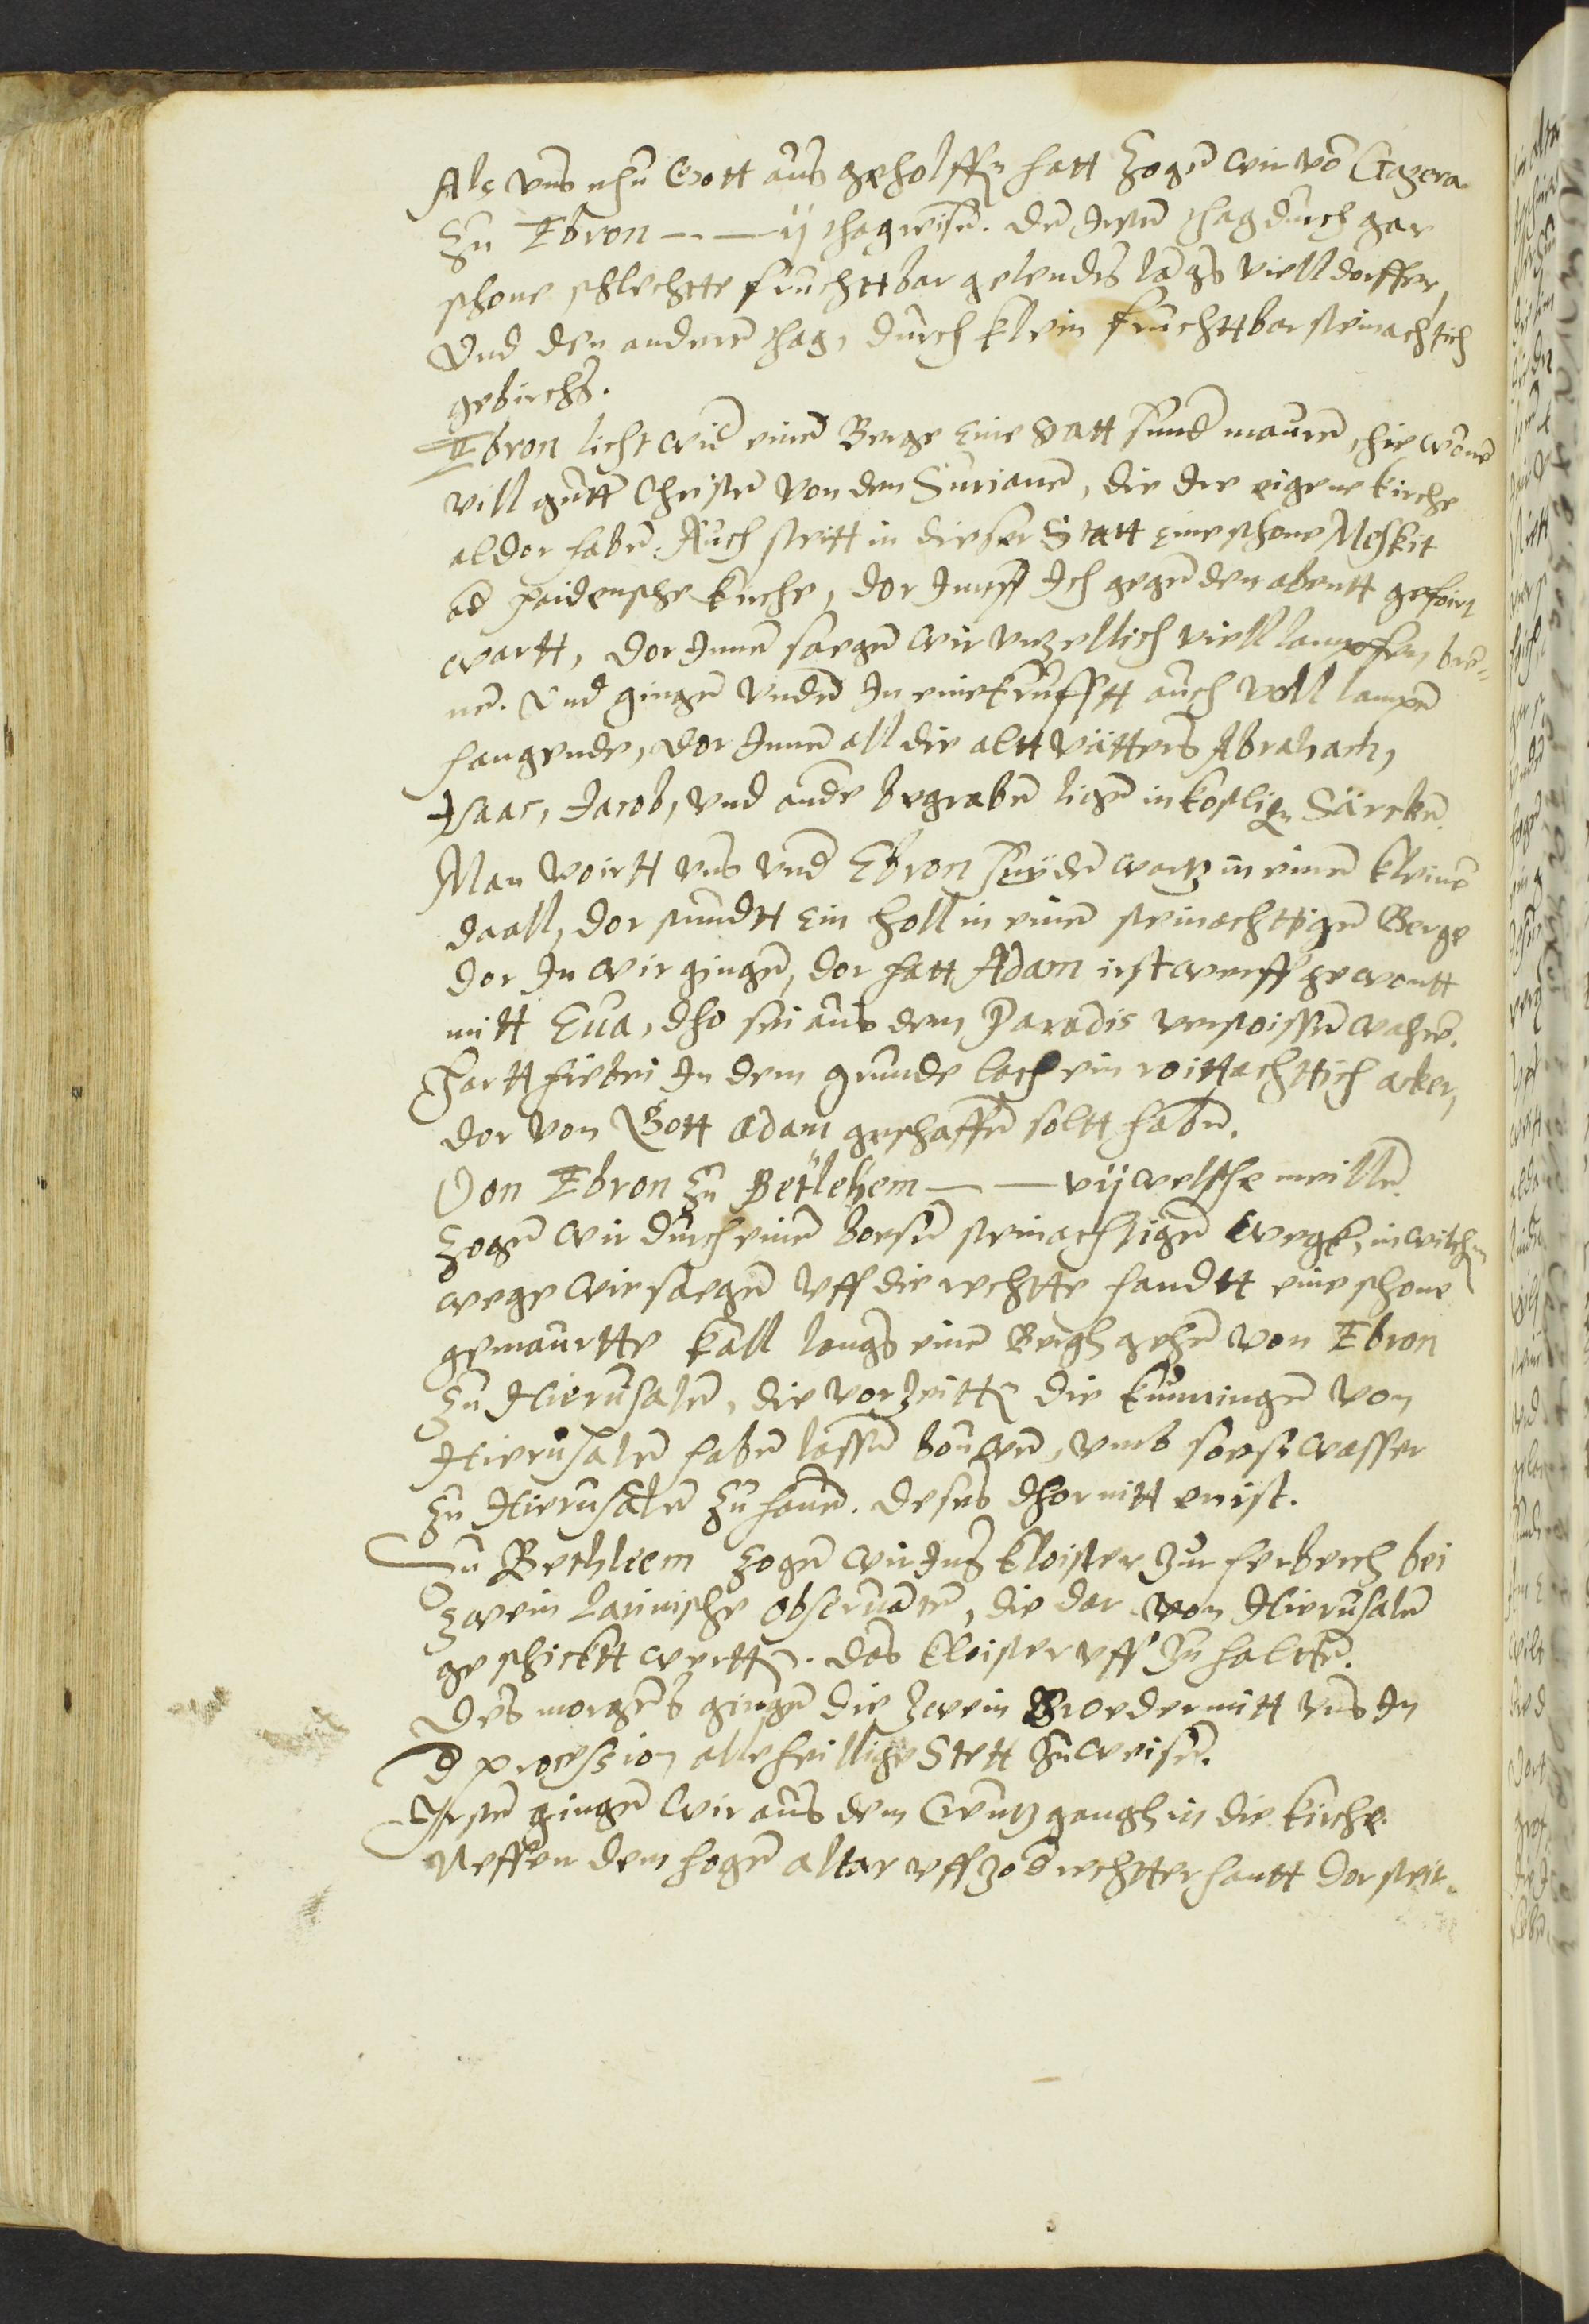 Als vns nhu Gott aus geholffen hatt zogen wir von Gazera
zu Ebron — — ij thagreisen. den irsten thag durch gar
schone schlechtte fruchttbar gelendts langs viell dorffer,
Vnd den anderen thag, durch klein fruchttbar steinachtich
gebirchs.
Ebron licht wid einen Berge eine statt sund mauren, hie wonen
vill gutten Christen von den Surianen, die ire eigene kirche
aldor haben. Auch steitt in dieser Statt eine schone Meskit
ad heidensche kirche, dor Inne Ich gegen den abentt gefoirt
wartt, dor Innen saegen wir vnzellich viell lampen bre-
nen. Vnd gingen vnden In eine krufftt auch voll lampen
hangende, dor Innen all die altt vätters Abraham,
Isaac, Jacob, vnd andre begraben ligen in kosligen Särcken.
Man voirtt vns vmb Ebron suyden wartz in einen kleinen
daall, dor stundtt ein holl in einen steinachttigen Berge
dor In wir gingen, dor hatt Adam irst werff gewontt
mitt Eua, dho sei aus dem Paradis verstoissen wahren.
Hartt hiebei In dem grunde lach ein roittachttich acker,
dor von Gott Adam geschaffen soltt haben.
Von Ebron zu Betlehem — — vij welsche meillen
zogen wir durch einen boesen steinachtigen wegk, in wilchen
wege wir saegen vff die rechtte handtt eine schone
gemaurtte kall langs einen Bergh gehen von Ebron
zu Hierusalem, die vorzeitten die kunningen von
Hierusalem haben lassen bouwen, vmb soess wasser
zu Hierusalem zu hauen. deses dhor nitt en ist.
Zu Bethleem zogen wir Ins kloister zur herberch bei
zwein latinische obseruanten, die dar von Hierusalem
geschicktt wertten. das kloister vff zu haltten.
Des morgens gingen die zwein Broeder mitt vns In
d procession alle heillige Stett zu weisen.
Irsten gingen wir aus dem Creutzgangh in die kirche.
Neffen dem hogen altar vff zo d rechtter hantt dor steit